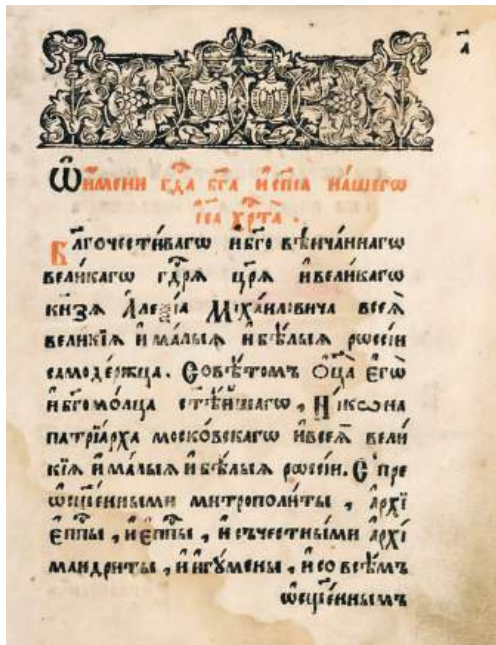 а҃
Ѿ и҆мени гдⷭ҇а бг҃а и҆ сп҃са на́шегѡ
і҆с҃а хрⷭ҇та̀ .
Бл҃гочести́вагѡ и҆ бг҃овѣнча́ннагѡ
вели́кагѡ гдⷭ҇рѧ цр҃ѧ и҆ вели́кагѡ
кн҃зѧ А҆леѯі́а Мїха́иловича всеѧ̀
вели́кїѧ и҆ ма́лыѧ и҆ бѣ́лыѧ рѡсси́и
самоде́ржца . Совѣ́томъ Ѻ҆ц҃а̀ є҆гѡ̀
и҆ бг҃омо́лца ст҃ѣ́йшагѡ , Ни́кѡна
патрїа́рха моско́вскагѡ и҆ всеѧ̀ вели́
кїѧ и҆ ма́лыѧ и҆ бѣ́лыѧ рѡсси́и . С пре
ѡ҆сщ҃е́нными митрополи́ты , а҆рхї
є҆пⷭ҇пы , и҆ є҆пⷭ҇пы , и҆ съ честны́ми а҆рхі
мандри́ты , и҆ и҆гꙋ́мены , и҆ со всѣ́мъ
ѡ҆сщ҃е́ннымъ